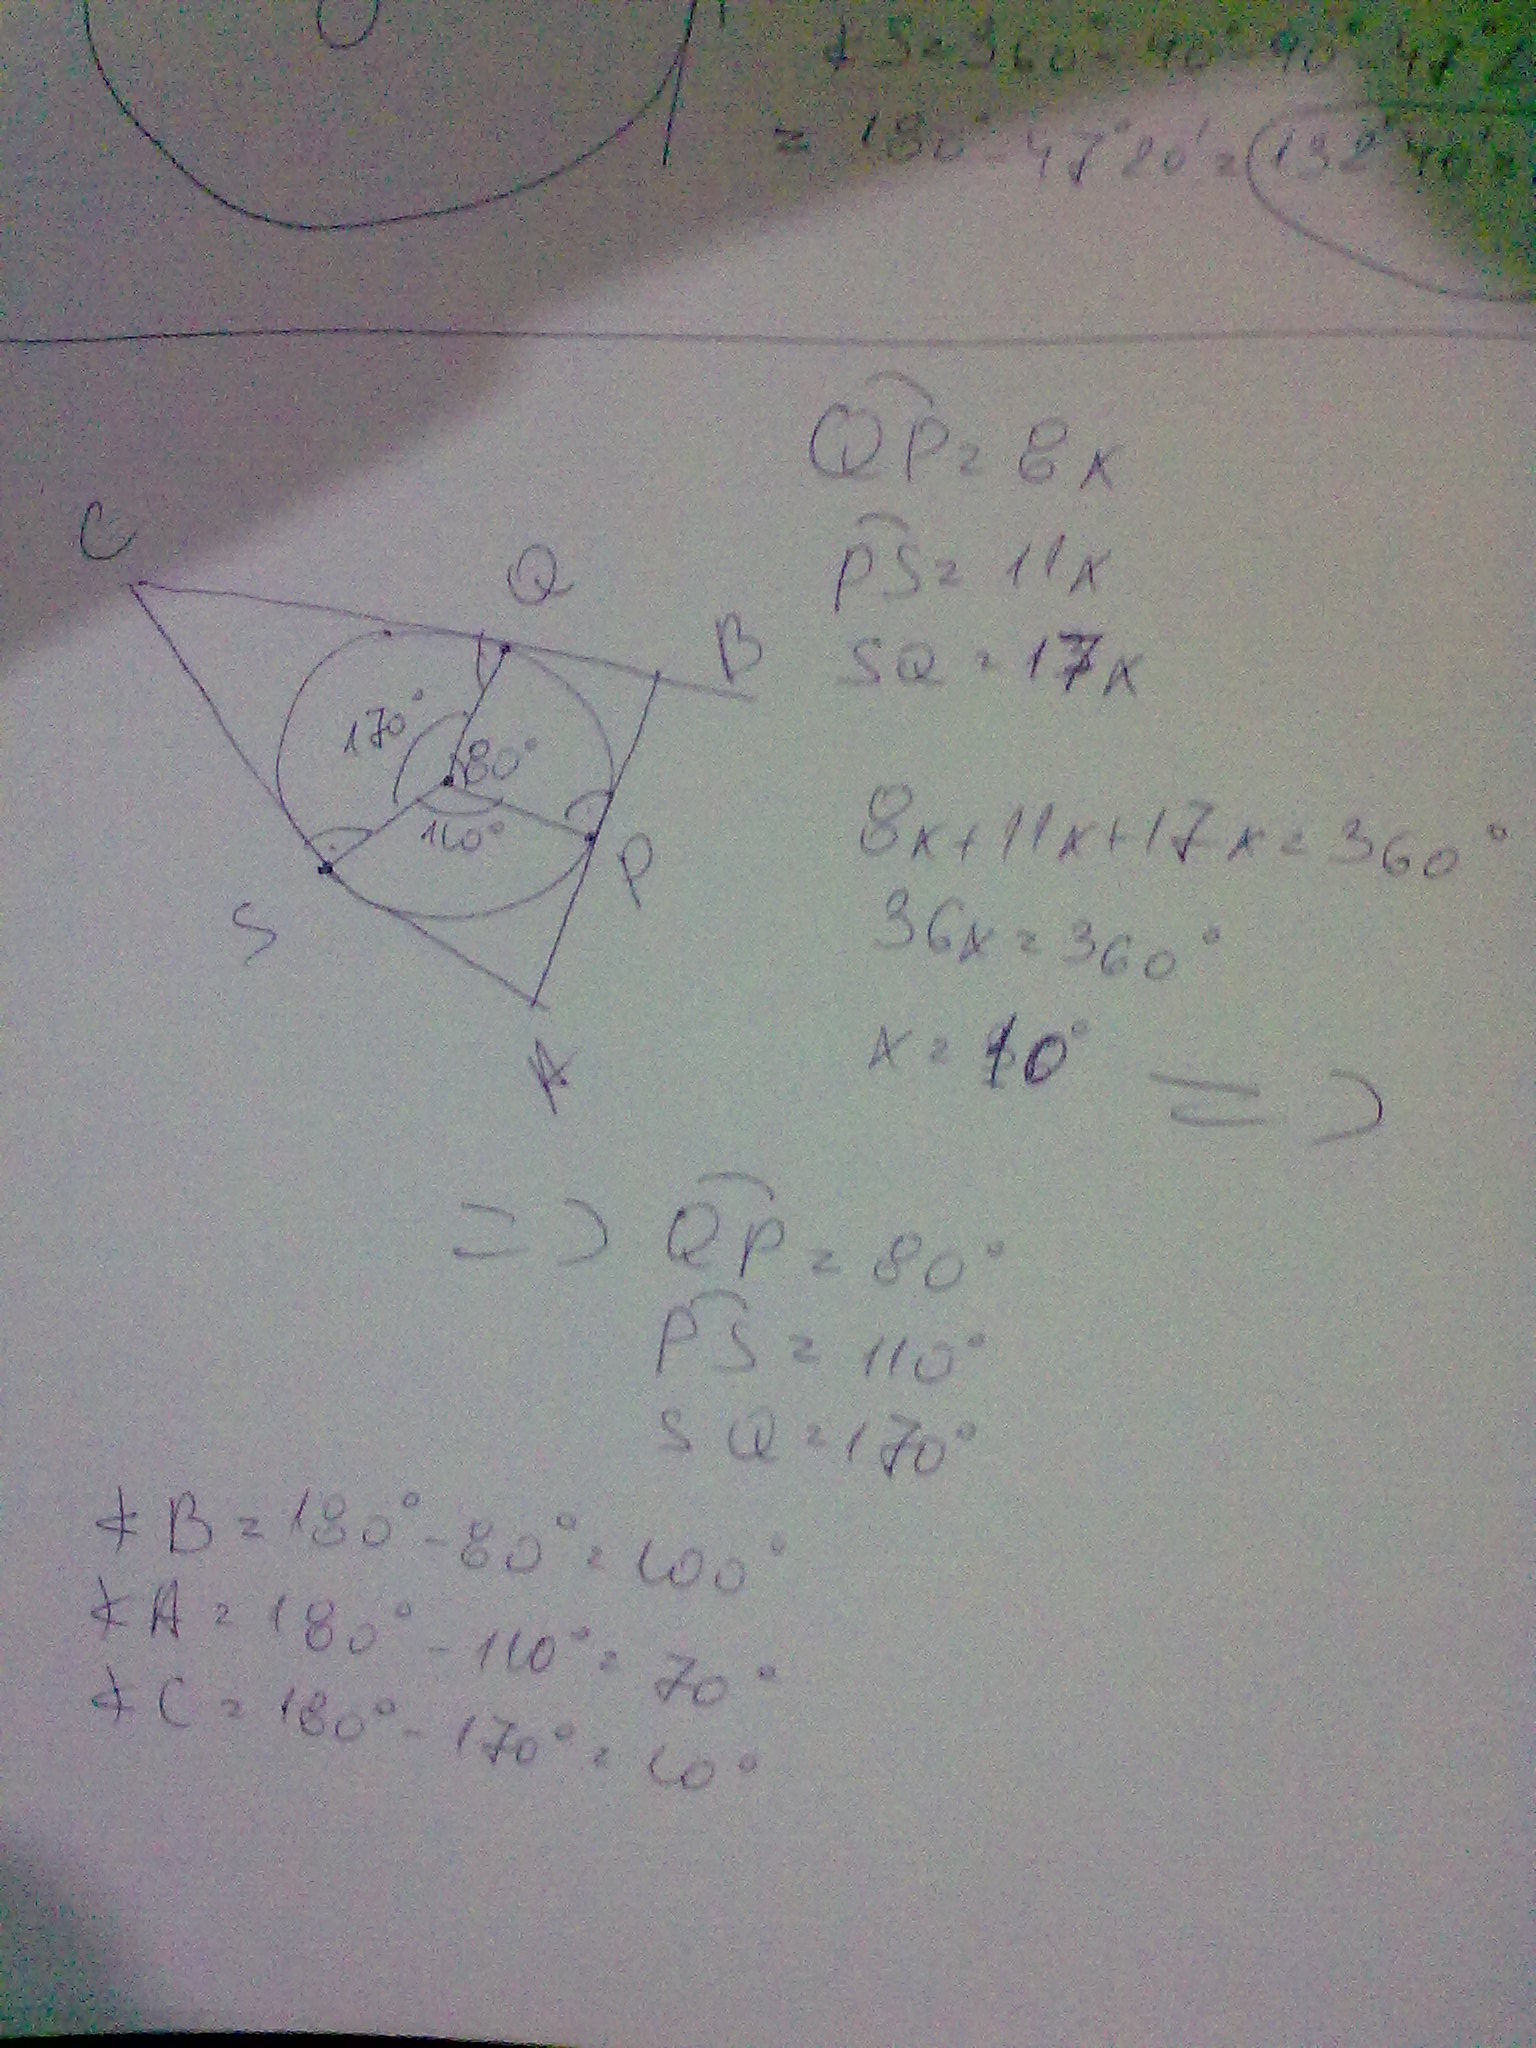 ∡S=360°-90°-90°-47°2
= 180°-47°20'=132°40'
C
Q
B
170°
80°
110°
P
S
A
QP=8x
PS=11x
SQ=17x
8x+11x+17x=360°
36x=360°
x=10° =>
=> QP=80°
PS=110°
SQ=170°
∡B=180°-80°=100°
∡A=180°-110°=70°
∡C=180°-170°=10°